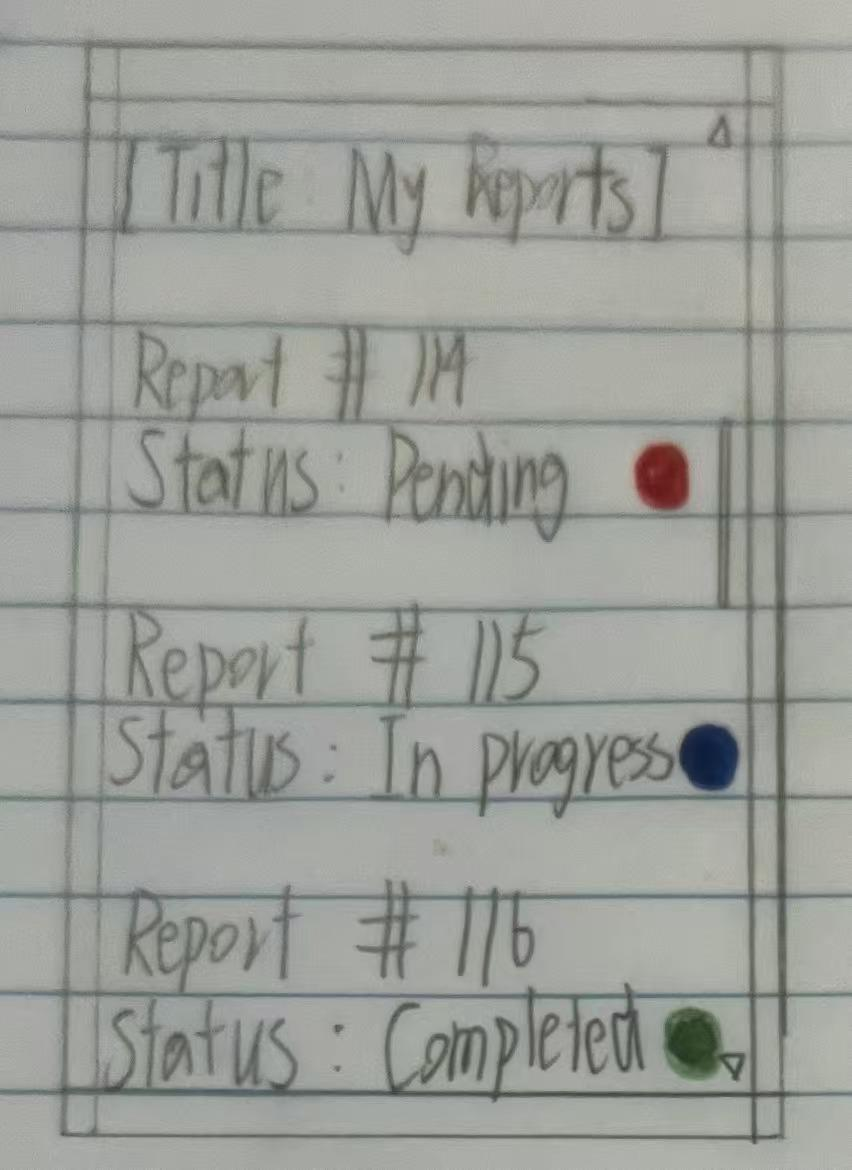 [Title: My Reports]
Report # 114
Status: Pending
Report # 115
Status: In progress
Report # 116
Status: Completed